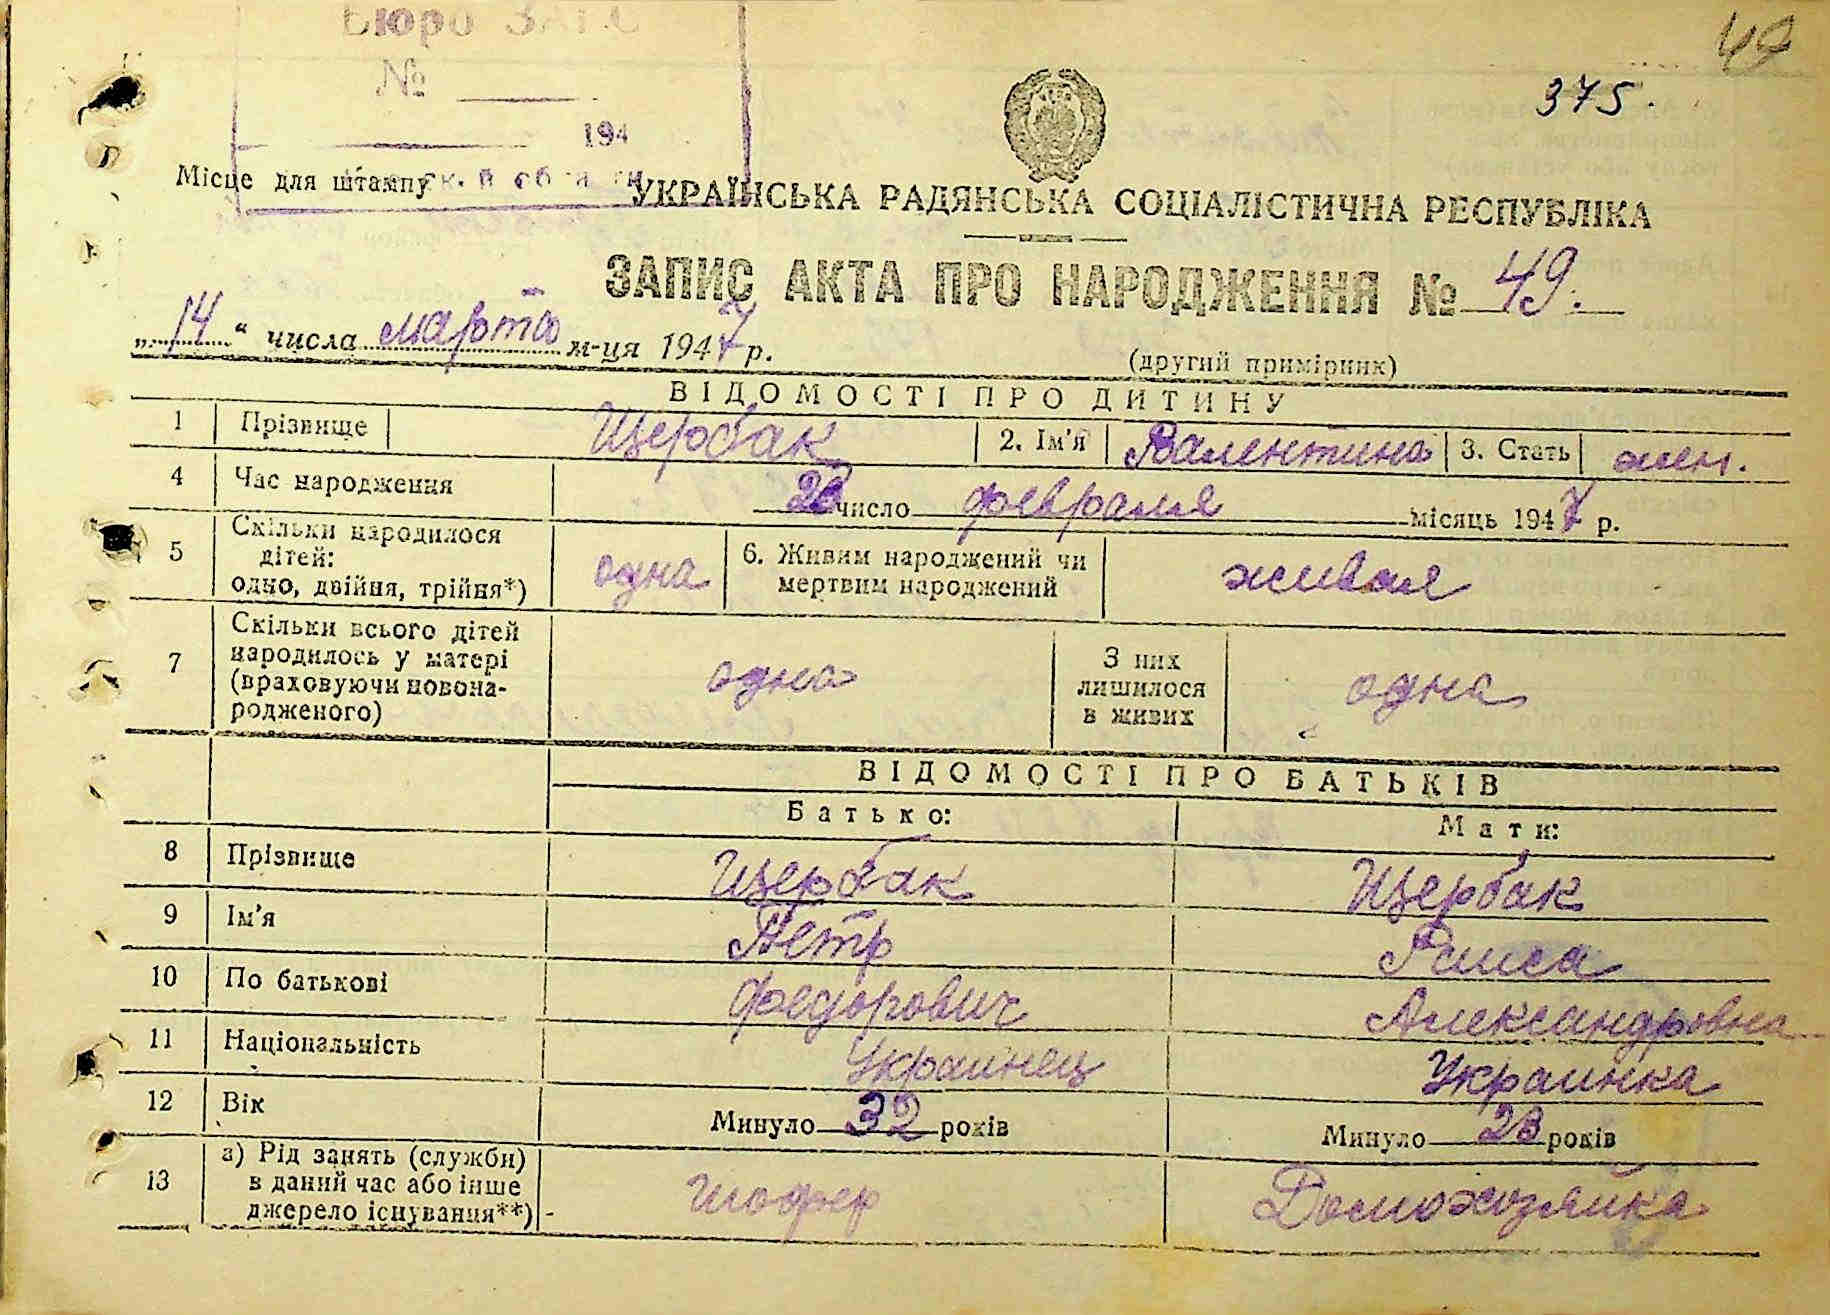 Бюро ЗАГС
49
№
375.
194
Місце для штампу
УКРАЇНСЬКА РАДЯНСЬКА СОЦІАЛІСТИЧНА РЕСПУБЛІКА
ЗАПИС АКТА ПРО НАРОДЖЕННЯ № 49.
„14“ числа марта м-ця 1947 р.
(другий примірник)
ВІДОМОСТІ ПРО ДИТИНУ
1 Прізвище Щербак 2. Ім'я Валентина 3. Стать жен.
4 Час народження число февраля місяць 1947 р.
5 Скільки народилося
дітей:
одно, двійня, трійня*) одна 6. Живим народжений чи
мертвим народжений живая
7 Скільки всього дітей
народилось у матері
(враховуючи новона-
родженого) одна З них
лишилося
в живих одна
ВІДОМОСТІ ПРО БАТЬКІВ
Батько: Мати:
8 Прізвище Щербак Щербак
9 Ім'я Петр Раиса
10 По батькові Федорович Александровна
11 Національність Украинец Украинка
12 Вік Минуло 32 років Минуло 23 років
13 а) Рід занять (служби)
в даний час або інше
джерело існування**) Шофер Домохозяйка